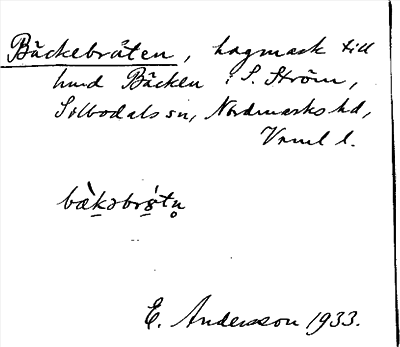 Bäckebråten, hagmark till
hmd Bäcken i S. Ström,
Silbodals sn, Nordmarks hd,
Vrml l.
bæ̀kəbrǻtn̥
E. Andersson 1933.